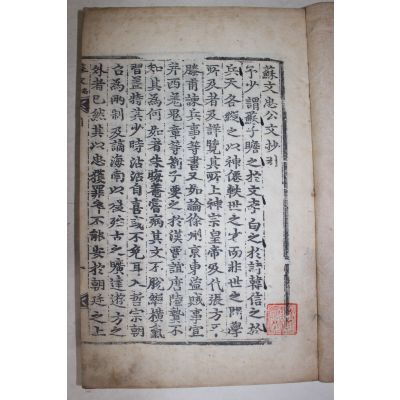 蘇文忠公文抄引
予少謂蘇子瞻之於文李白之於詩韓信之於
兵天各縱之以神僊軼世之才而非世之問學
所及者及詳覽其所上神宗皇帝及代張方平
滕甫諫兵事等書又如論徐州京東盜賊事宜
并西羌鬼章等劄子要之於漢賈誼唐陸贄不
知其為何如者朱晦菴嘗病其文不脫縱橫氣
習蓋特其少時沾沾自喜或不免耳入哲宗朝
召為兩制及謫海南以後殆古之曠達遊方之
外者已然其以忠獲罪卒不能安於朝廷之上